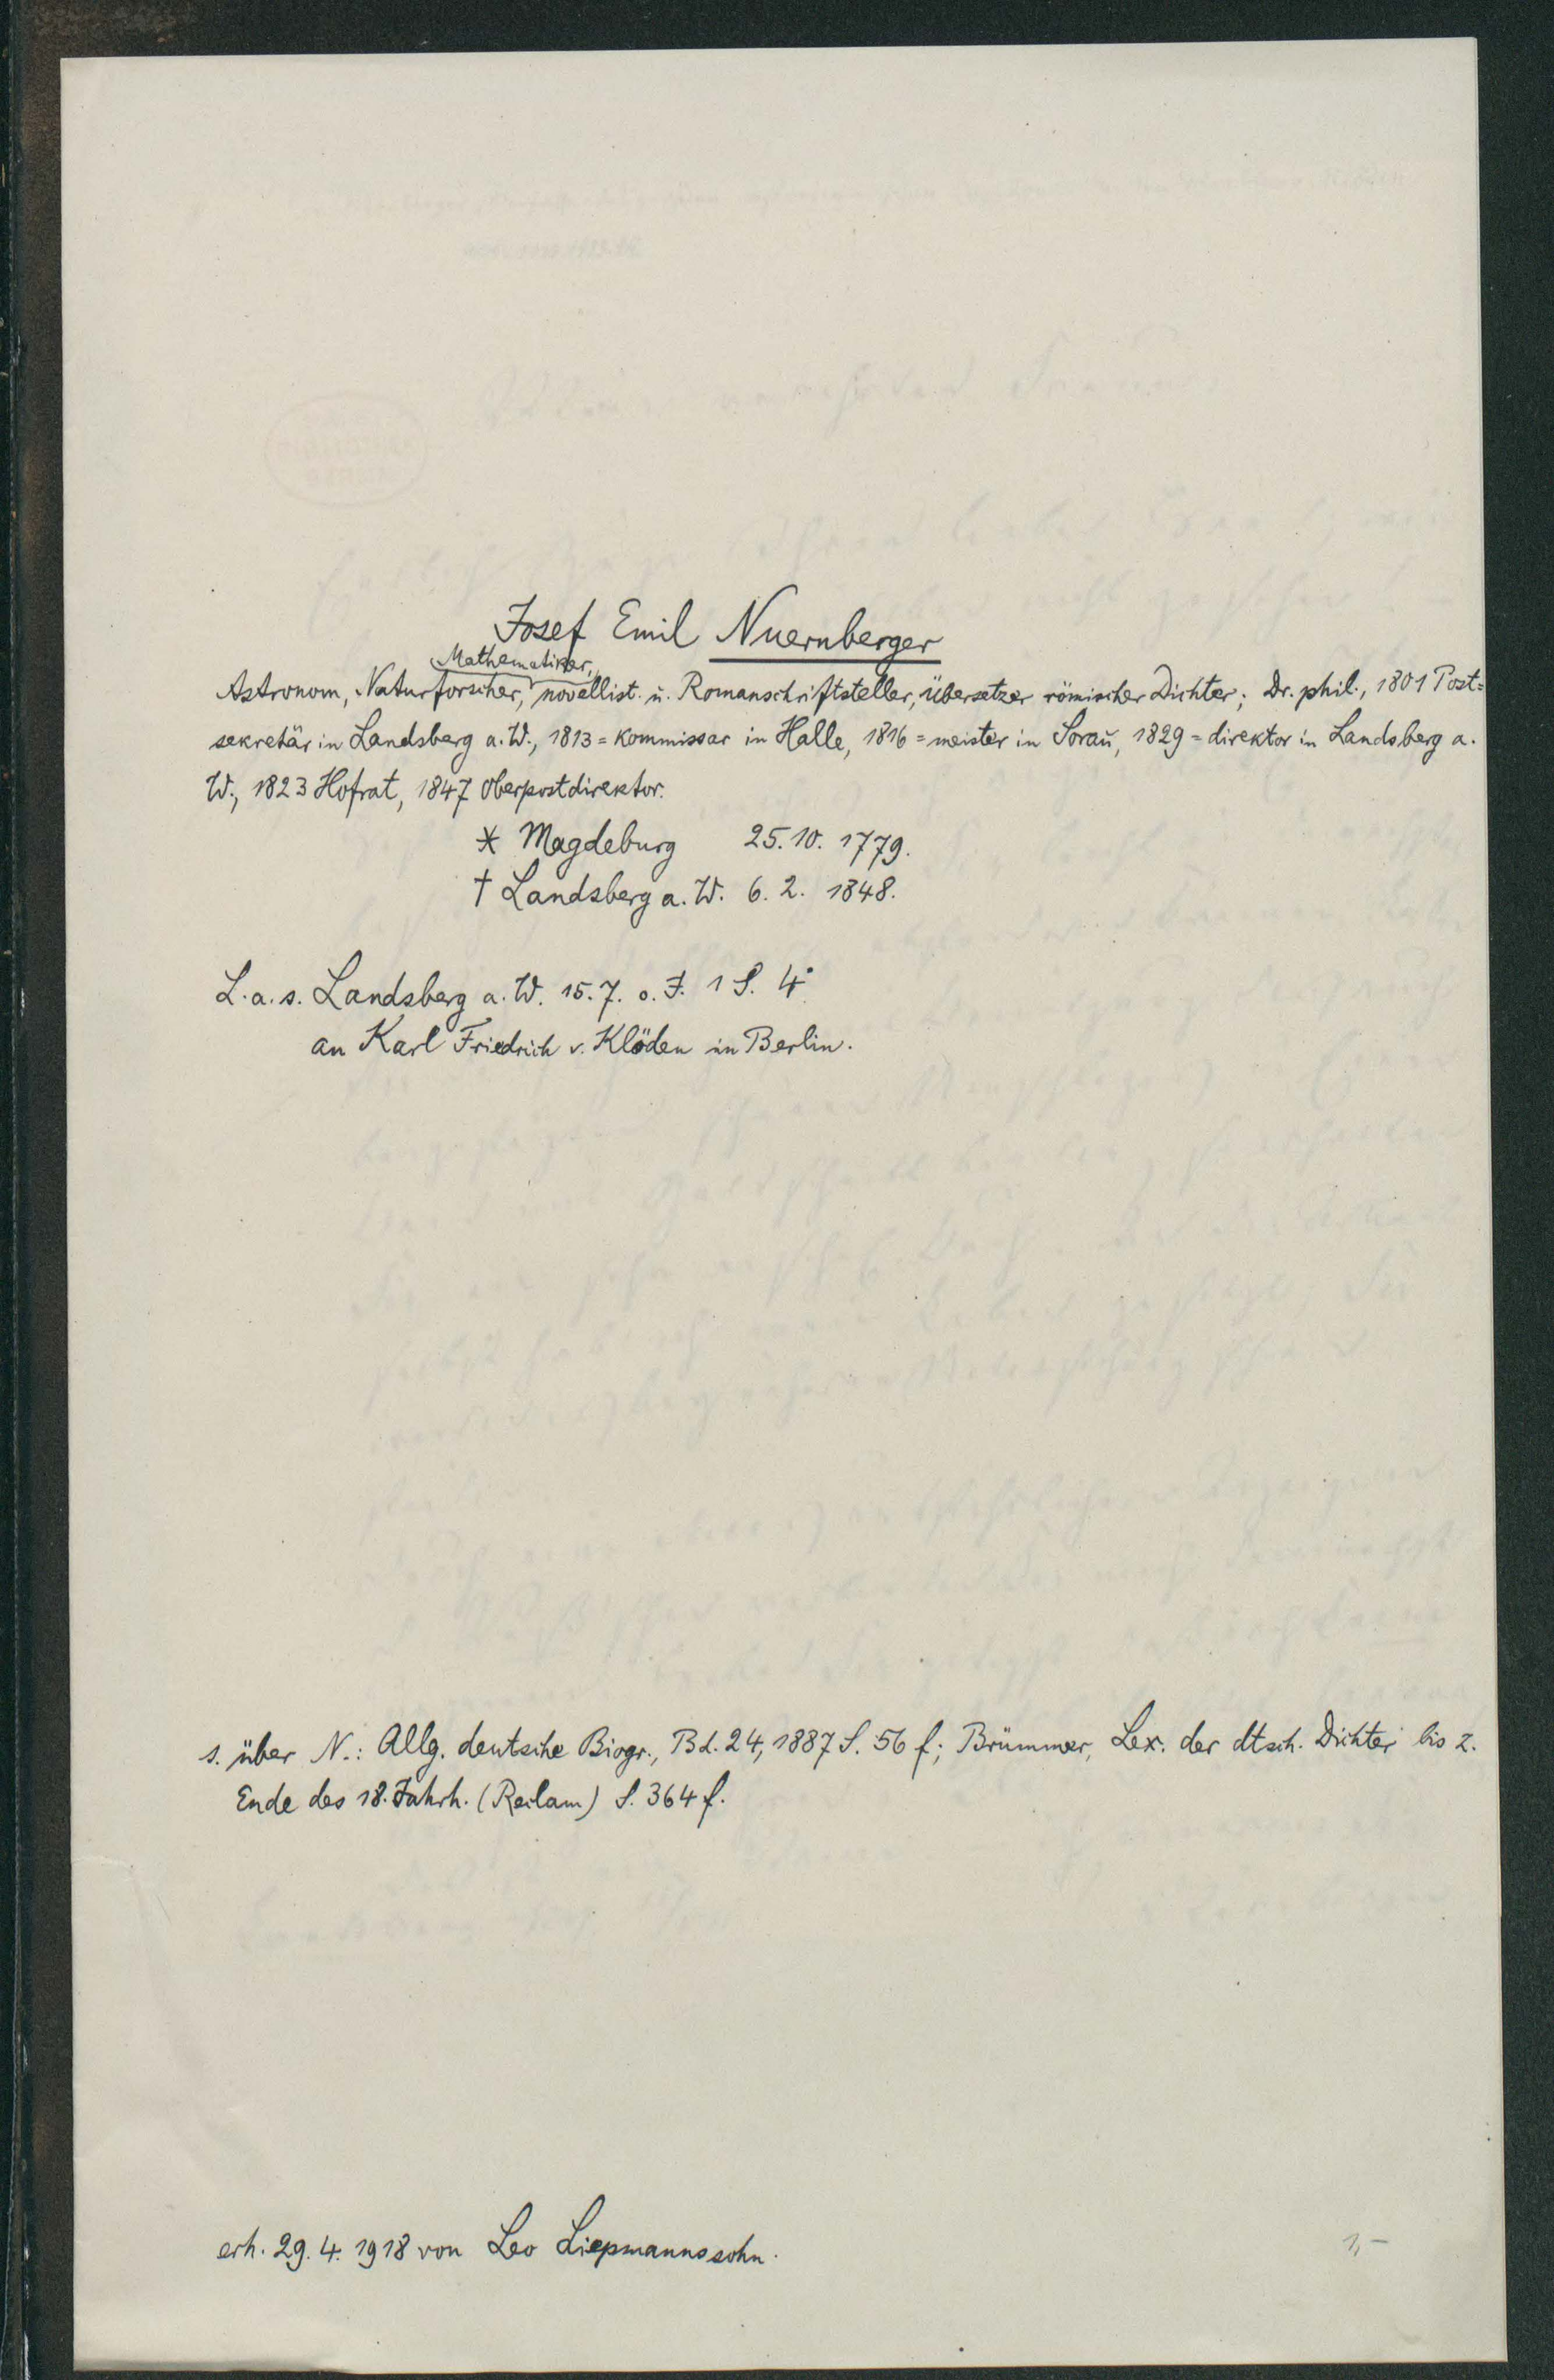 Josef Emil Nuernberger
Mathematiker,
Astronom, Naturforscher, novellist. u. Romanschriftsteller, Übersetzer römischer Dichter; Dr. phil., 1801 Post=
sekretär in Landsberg a. W., 1813 =kommissar in Halle, 1816 =meister in Sorau, 1829 =direktor in Landsberg a.
W., 1823 Hofrat, 1847 Oberpostdirektor.
* Magdeburg 25. 10. 1779.
† Landsberg a. W. 6. 2. 1848.
L. a. s. Landsberg a. W. 15. 7. o. J. 1 S. 4°
an Karl Friedrich v. Klöden in Berlin.
s. über N.: Allg. deutsche Biogr., Bd. 24, 1887 S. 56 f; Brümmer, Lex. der dtsch. Dichter bis z.
Ende des 18. Jahrh. (Reclam) S. 364 f.
erh. 29. 4. 1918 von Leo Liepmannssohn.
1,-